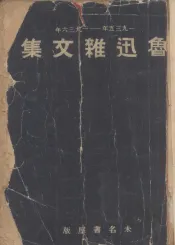 一九三五年——一九三六年
魯迅雜文集
未名書屋版